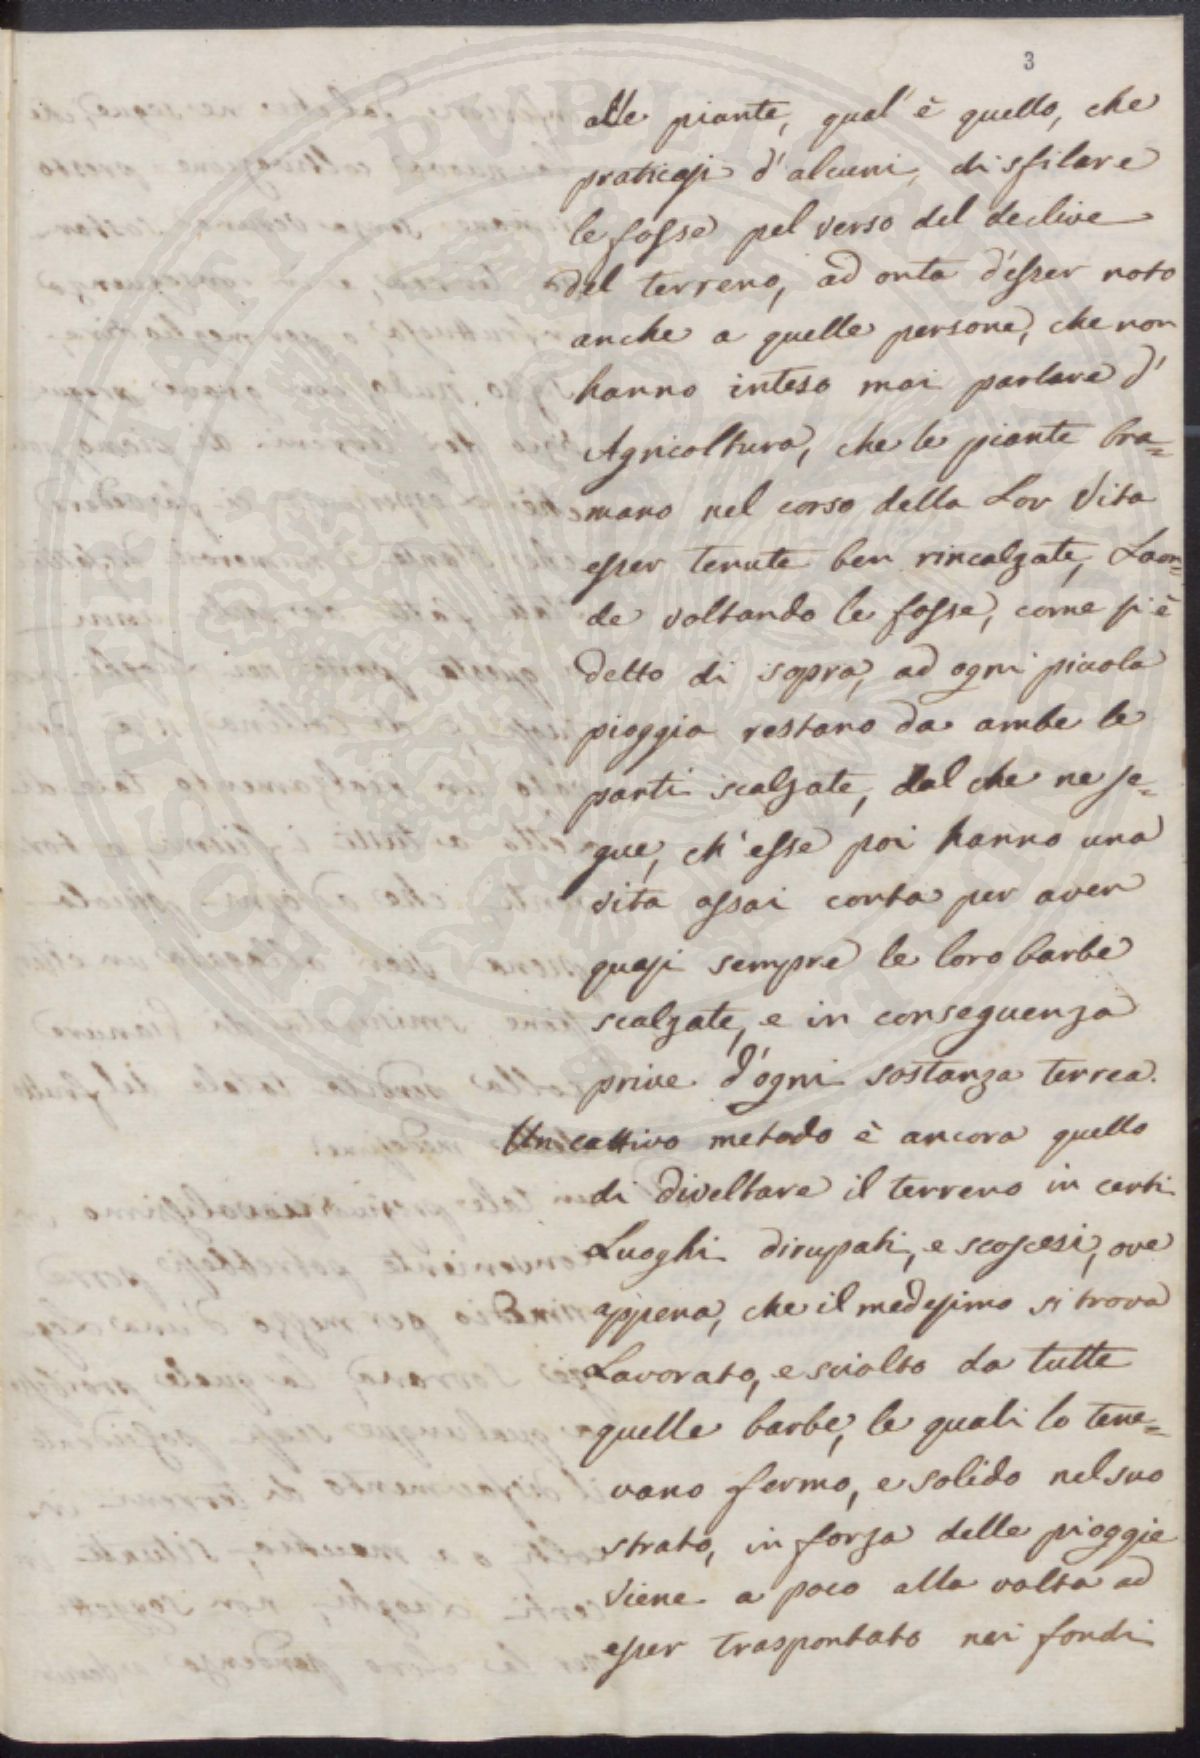 3
alle piante, qual'è quello, che
praticasi d'alcuni, di sfilare
le fosse pel verso del declive
del terreno, ad onta d'esser noto
anche a quelle persone, che non
hanno inteso mai parlare d'
Agricoltura, che le piante bra=
mano nel corso della Lor Vita
esser tenute ben rincalzate, Laon=
de voltando le fosse, come si è
detto di sopra, ad ogni picola
pioggia restano da ambe le
parti scalzate, dal che ne se=
gue, ch'esse poi hanno una
vita assai corta per aver
quasi sempre le loro barbe
scalzate, e in conseguenza
prive d'ogni sostanza terrea.
Un cattivo metodo è ancora quello
di diveltare il terreno in certi
Luoghi dirupati, e scoscesi, ove
appena, che il medesimo si trova
Lavorato, e sciolto da tutte
quelle barbe, le quali lo tene=
vano fermo, e solido nel suo
strato, in forza delle pioggie
viene a poco alla volta ad
esser trasportato nei fondi